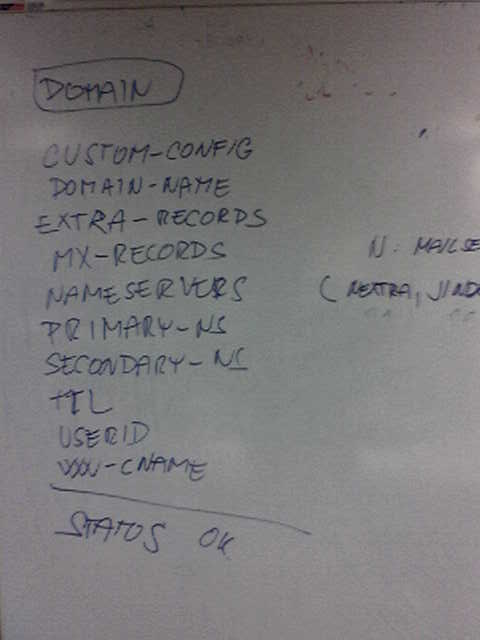 DOMAIN
CUSTOM-CONFIG
DOMAIN-NAME
EXTRA-RECORDS
MX-RECORDS N. MAILSE
NAMESERVERS ( NEXTRA, JIND
PRIMARY-NS
SECONDARY-NS
TTL
USERID
WWW-CNAME
STATUS OK